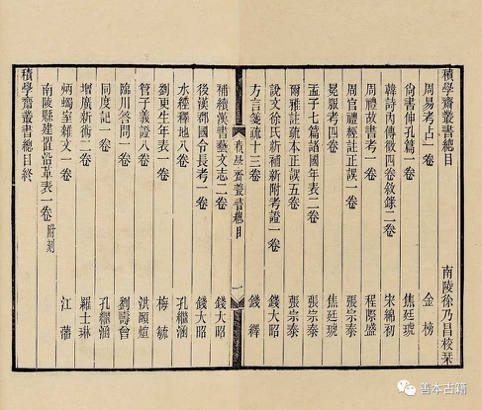 積學齋叢書總目
南陵徐乃昌校栞
周易考占一卷 金榜
尚書伸孔篇一卷 焦廷琥
韓詩內傳徵四卷敘錄二卷 宋綿初
周禮故書考一卷 程際盛
周官禮經註正誤一卷 張宗泰
冕服考四卷 焦廷琥
孟子七篇諸國年表二卷 張宗泰
爾雅註疏本正誤五卷 張宗泰
說文徐氏新補新附考證一卷 錢大昭
方言箋疏十三卷 錢繹
積學齋叢書總目 一
補續漢書藝文志二卷 錢大昭
後漢郡國令長考一卷 錢大昭
水經釋地八卷 孔繼涵
劉更生年表一卷 梅毓
管子義證八卷 洪頤煊
臨川答問一卷 劉壽曾
同度記一卷 孔繼涵
增廣新術二卷 羅士琳
炳燭室雜文一卷 江藩
南陵縣建置沿革表一卷 附刻
積學齋叢書總目終
善本古籍